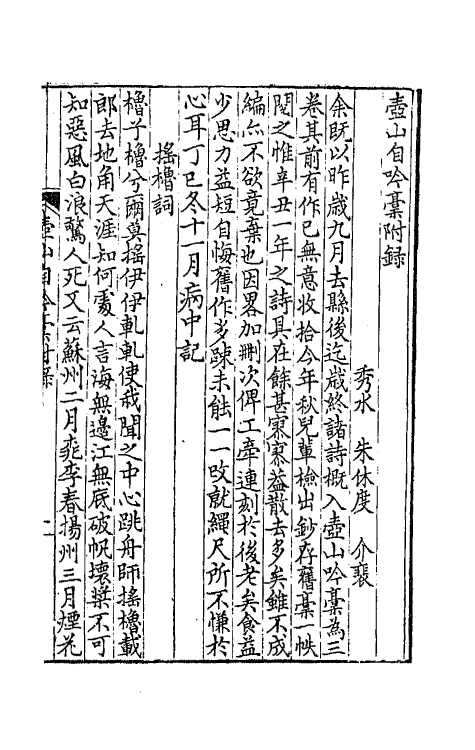 壺山自吟藁附録
秀水　朱休度　介裴
余既以昨歲九月去縣後迄歲終諸詩概入壺山吟藁為三
卷其前有作已無意收拾今年秋兒輩檢出鈔存舊藁一帙
閱之惟辛丑一年之詩具在餘甚寥寥蓋散去多矣雖不成
編亦不欲竟棄也因畧加刪次俾工牽連刻於後老矣食益
少思力益短自悔舊作多疎未能一一改就繩尺所不慊於
心耳丁巳冬十一月病中記
搖櫓詞
櫓子櫓兮爾莫搖伊伊軋軋使我聞之中心跳舟師搖櫓載
郎去地角天涯知何處人言海無邊江無底破帆壞槳不可
知惡風白浪驚人死又云蘇州二月桃李春揚州三月煙花
壺山自吟藁附録
一